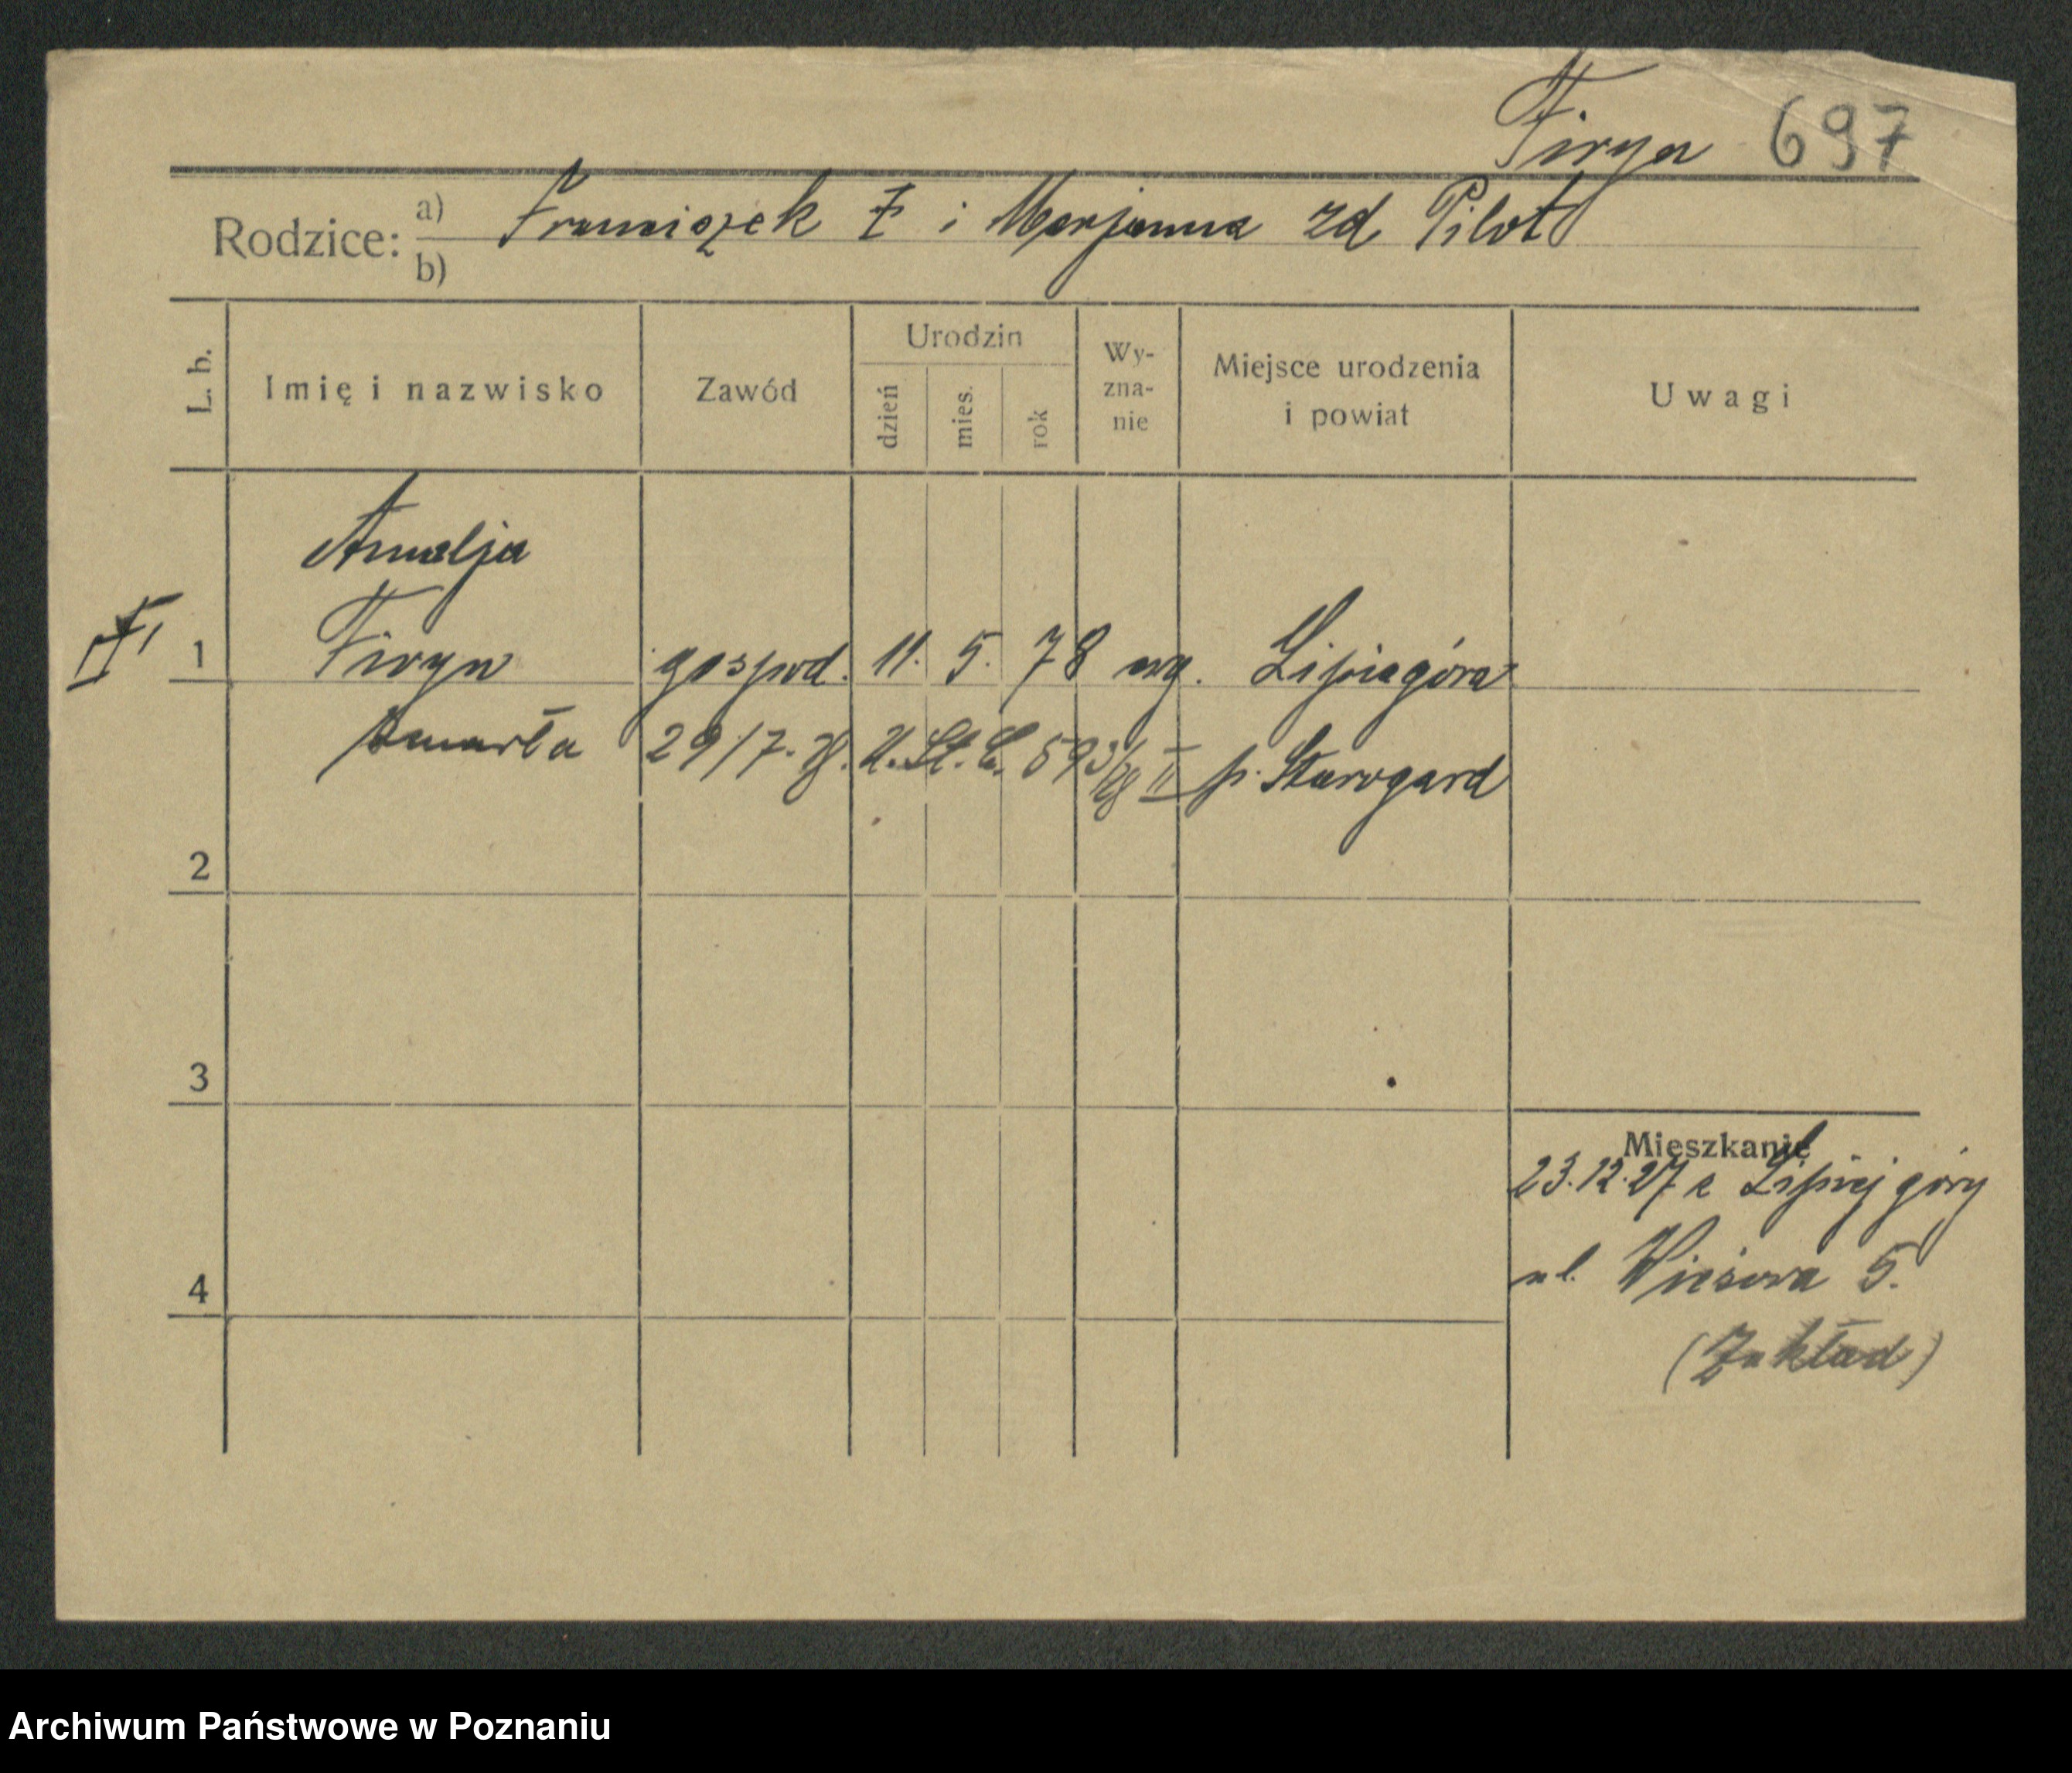 Firyn 697
Rodzice: a) Franciszek F i Marjanna zd Pilot
b)
L. b. Imię i nazwisko Zawód Urodzin dzień mies. rok Wy-zna-nie Miejsce urodzenia i powiat Uwagi
Amalja
1 Firyn gospod. 11. 5. 78 Lipiagóra
zmarła 29/7. 28. U.St.C. 593/28 II p. Starogard
2
3
4
Mieszkanie
23.12.27 z Lipiej góry
ul. 5.
(Zakład)
Archiwum Państwowe w Poznaniu